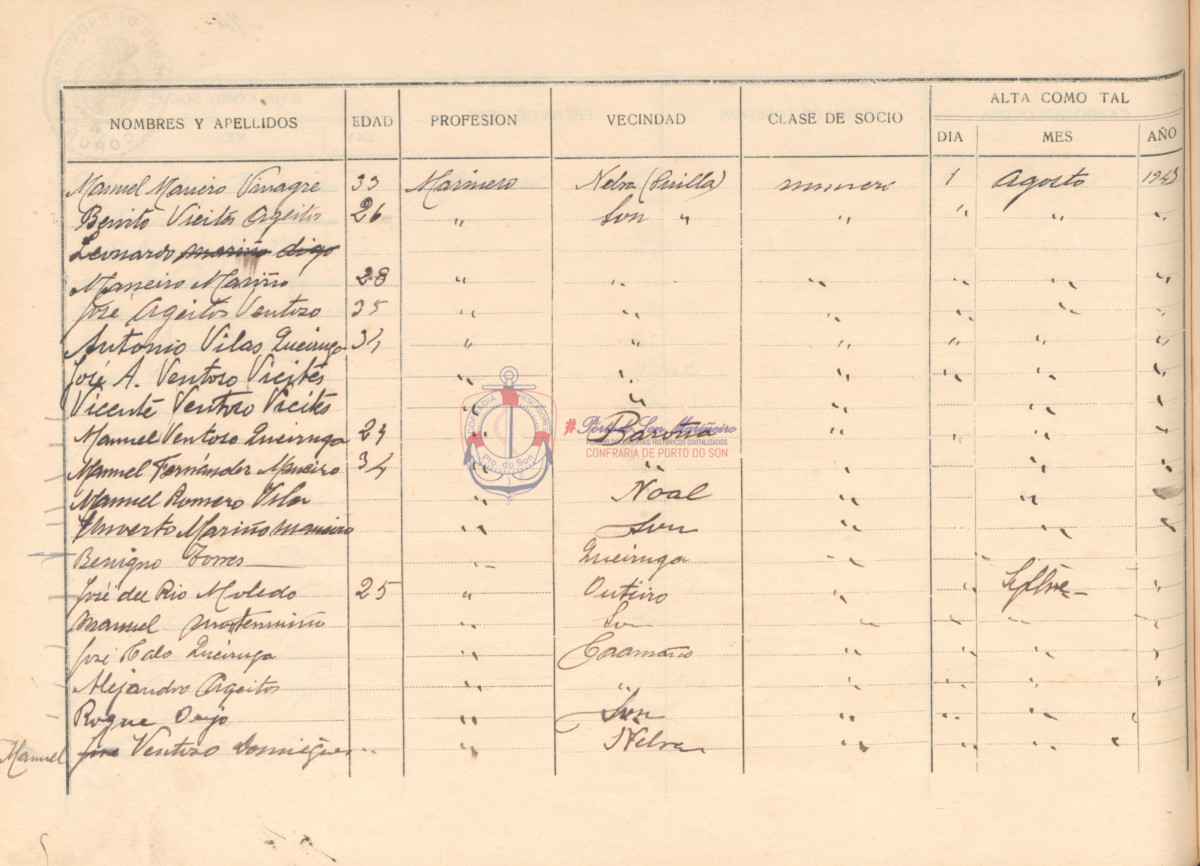 ALTA COMO TAL
NOMBRES Y APELLIDOS EDAD PROFESION VECINDAD CLASE DE SOCIO DIA MES AÑO
Manuel Maneiro Vinagre 33 Marinero Nebra (Suilla) numero 1 Agosto 1943
Benito Vicites Ageitos 26 " Son " " " " "
Leonardo mariño digo
Maneiro Mariño 28 " " " " " "
José Ageitos Ventoso 35 " " " " " "
Antonio Vilas Queiruga 34 " " " " " "
José A. Ventoso Vicites " " " " " "
Vicente Ventoso Vicites " " " " "
Manuel Ventoso Queiruga 24 " Baroña " " " "
Manuel Fernández Maneiro 34 " " " " "
Manuel Romero Vilar " Noal " " "
Umverto Mariño maneiro " Son " " "
Benigno Torres " Queiruga " "
José del Rio Moledo 25 " Outeiro " " Sepbre "
Manuel " Son " " " "
José Calo Queiruga " Caamaño " " " "
Alejandro Ageitos " " " " " "
Roque Oujo " Son " " " "
Manuel José Ventoso Domínguez " " Nebra " " " "
COFRADIA PESCADORES
Pto. do Son
#Porto do Son Mariñeiro
FONDOS DOCUMENTAIS HISTÓRICOS DIXITALIZADOS
CONFRARÍA DE PORTO DO SON